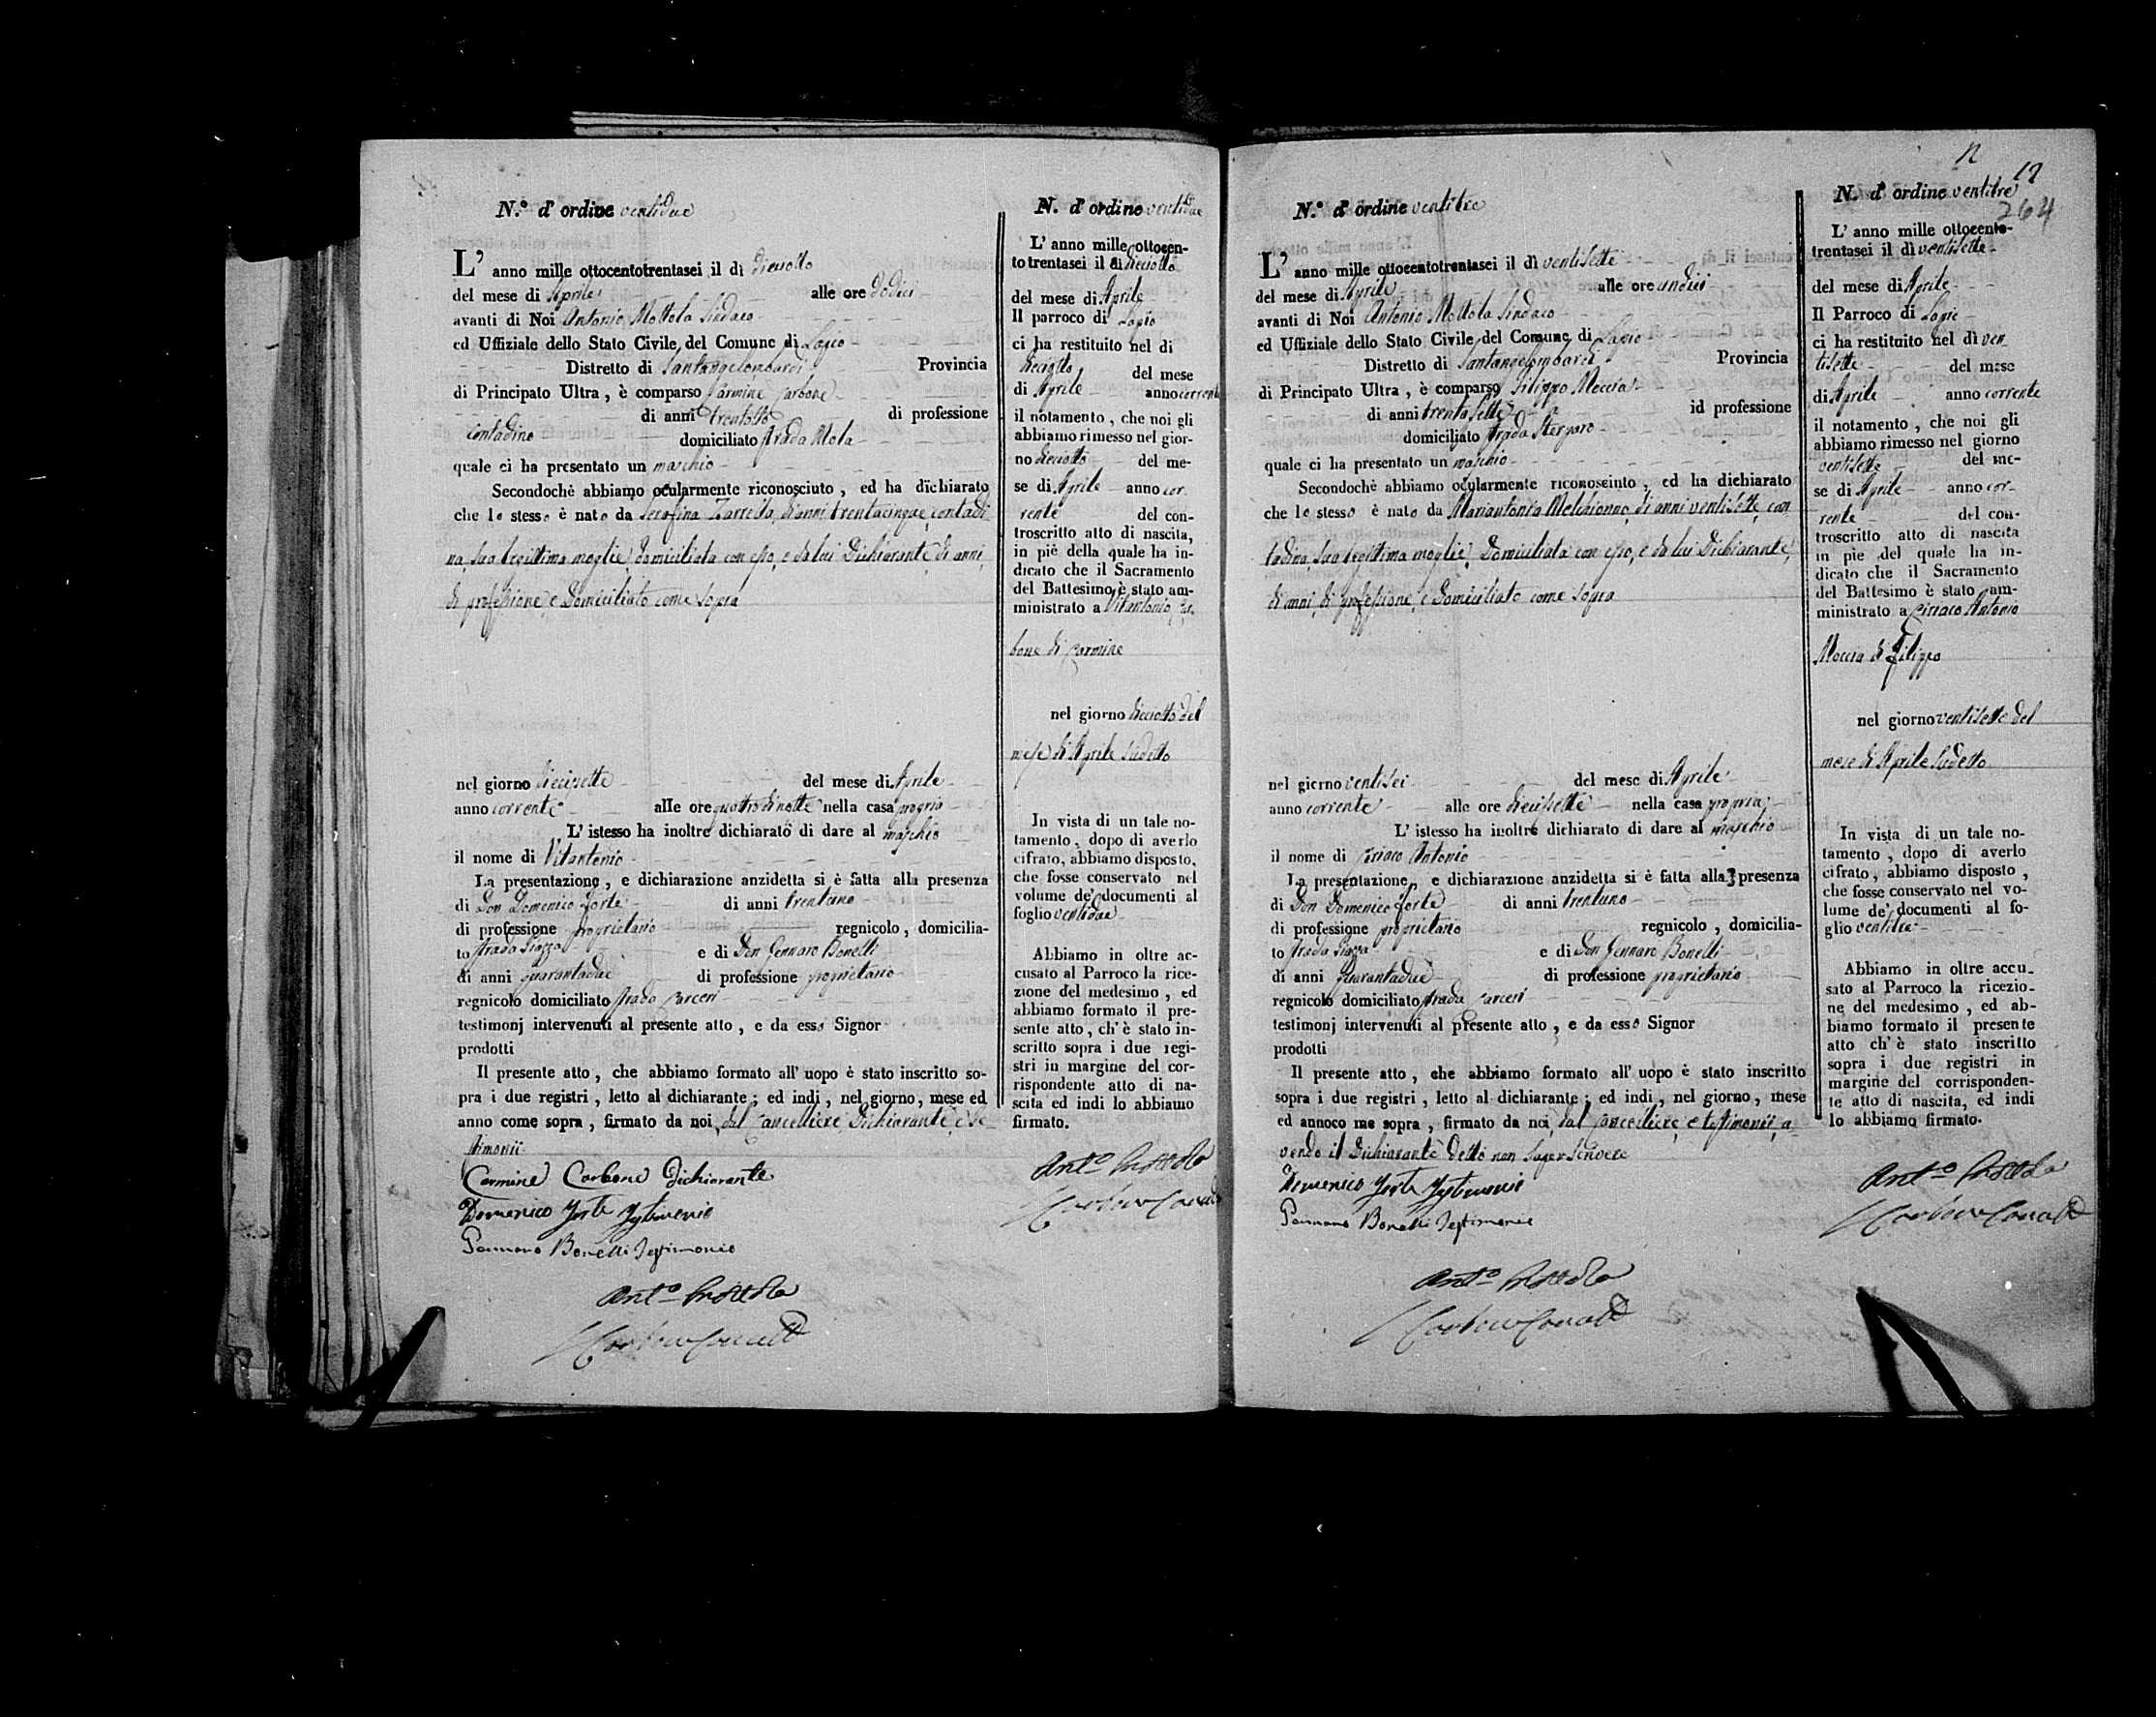 N.° d' ordine ventidue
L' anno mille ottocentotrentasei il dì dieciotto
del mese di Aprile alle ore dodici
avanti di Noi Antonio Mottola Sindaco
ed Uffiziale dello Stato Civile del Comune di Lapio
Distretto di Santangelombardi Provincia
di Principato Ultra , è comparso Carmine Carbone
di anni trentotto di professione
contadino domiciliato strada Mola
quale ci ha presentato un maschio
Secondochè abbiamo ocularmente riconosciuto , ed ha dichiarato
che lo stesso è nato da Serafina Zarrella, d'anni trentacinque, contadi
na, sua legittima moglie, domiciliata con esso, e da lui Dichiarante di anni,
di professione, e domiciliato come sopra
nel giorno diecisette del mese di Aprile
anno corrente alle ore quattro di notte nella casa propria
L' istesso ha inoltre dichiarato di dare al maschio
il nome di Vitantonio
La presentazione , e dichiarazione anzidetta si è fatta alla presenza
di Don Domenico Forte di anni trentuno
di professione proprietario regnicolo , domicilia-
to strada Piazza e di Don Gennaro Bonelli
di anni quarantadue di professione proprietario
regnicolo domiciliato strada Carceri
testimonj intervenuti al presente atto , e da esso Signor
prodotti
Il presente atto , che abbiamo formato all' uopo è stato inscritto so-
pra i due registri , letto al dichiarante ; ed indi , nel giorno, mese ed
anno come sopra , firmato da noi, dal Cancelliere Dichiarante, e te-
stimonii
Carmine Carbone Dichiarante
Domenico Forte Testimonio
Gennaro Bonelli Testimonio
Ant.o Mottola
N. d' ordine ventidue
L' anno mille ottocen-
to trentasei il dì dieciotto
del mese di Aprile
Il parroco di Lapio
ci ha restituito nel di
dieciotto del mese
di Aprile anno corrente
il notamento , che noi gli
abbiamo rimesso nel gior-
no dieciotto del me-
se di Aprile anno cor-
rente del con-
troscritto atto di nascita,
in piè della quale ha in-
dicato che il Sacramento
del Battesimo è stato am-
ministrato a Vitantonio Car-
bone di Carmine
nel giorno dieciotto del
mese di Aprile sudetto
In vista di un tale no-
tamento , dopo di averlo
cifrato, abbiamo disposto,
che fosse conservato nel
volume de' documenti al
foglio ventidue
Abbiamo in oltre ac-
cusato al Parroco la rice-
zione del medesimo , ed
abbiamo formato il pre-
sente atto , ch' è stato in-
scritto sopra i due regi-
stri in margine del cor-
rispondente atto di na-
scita ed indi lo abbiamo
firmato.
Ant.o Mottola
12
264
N.° d' ordine ventitre
L' anno mille ottocentotrentasei il dì ventisette
del mese di Aprile alle ore undici
avanti di Noi Antonio Mottola Sindaco
ed Uffiziale dello Stato Civile del Comune di Lapio
Distretto di Santangelombardi Provincia
di Principato Ultra , è comparso Filippo Moccia
di anni trentasette id professione
domiciliato strada
quale ci ha presentato un maschio
Secondochè abbiamo ocularmente riconosciuto , ed ha dichiarato
che lo stesso è nato da Mariantonia Melchionno, di anni ventisette, con
tadina, sua legittima moglie, domiciliata con esso, e da lui Dichiarante,
di anni, di professione, e domiciliato come sopra
nel giorno ventisei del mese di Aprile
anno corrente alle ore diecisette nella casa propria
L' istesso ha inoltre dichiarato di dare al maschio
il nome di Ciriaco Antonio
La presentazione , e dichiarazione anzidetta si è fatta alla presenza
di Don Domenico Forte di anni trentuno
di professione proprietario regnicolo , domicilia-
to strada Piazza e di Don Gennaro Bonelli
di anni quarantadue di professione proprietario
regnicolo domiciliato strada Carceri
testimonj intervenuti al presente atto , e da esso Signor
prodotti
Il presente atto , che abbiamo formato all' uopo è stato inscritto
sopra i due registri , letto al dichiarante ; ed indi , nel giorno , mese
ed annoco me sopra , firmato da noi, dal Cancelliere, e testimonii, a-
vendo il Dichiarante detto non saper scrivere
Domenico Forte Testimonio
Gennaro Bonelli Testimonio
Ant.o Mottola
N. d' ordine ventitre
L' anno mille ottocento-
trentasei il dì ventisette
del mese di Aprile
Il Parroco di Lapio
ci ha restituito nel dì ven
tisette del mese
di Aprile anno corrente
il notamento , che noi gli
abbiamo rimesso nel giorno
ventisette del me-
se di Aprile anno cor-
rente del con-
troscritto atto di nascita
in piè del quale ha in-
dicato che il Sacramento
del Battesimo è stato am-
ministrato a Ciriaco Antonio
Moccia di Filippo
nel giorno ventisette del
mese di Aprile sudetto
In vista di un tale no-
tamento , dopo di averlo
cifrato , abbiamo disposto ,
che fosse conservato nel vo-
lume de' documenti al fo-
glio ventitre
Abbiamo in oltre accu-
sato al Parroco la ricezio-
ne del medesimo , ed ab-
biamo formato il presente
atto ch' è stato inscritto
sopra i due registri in
margine del corrisponden-
te atto di nascita, ed indi
lo abbiamo firmato.
Ant.o Mottola